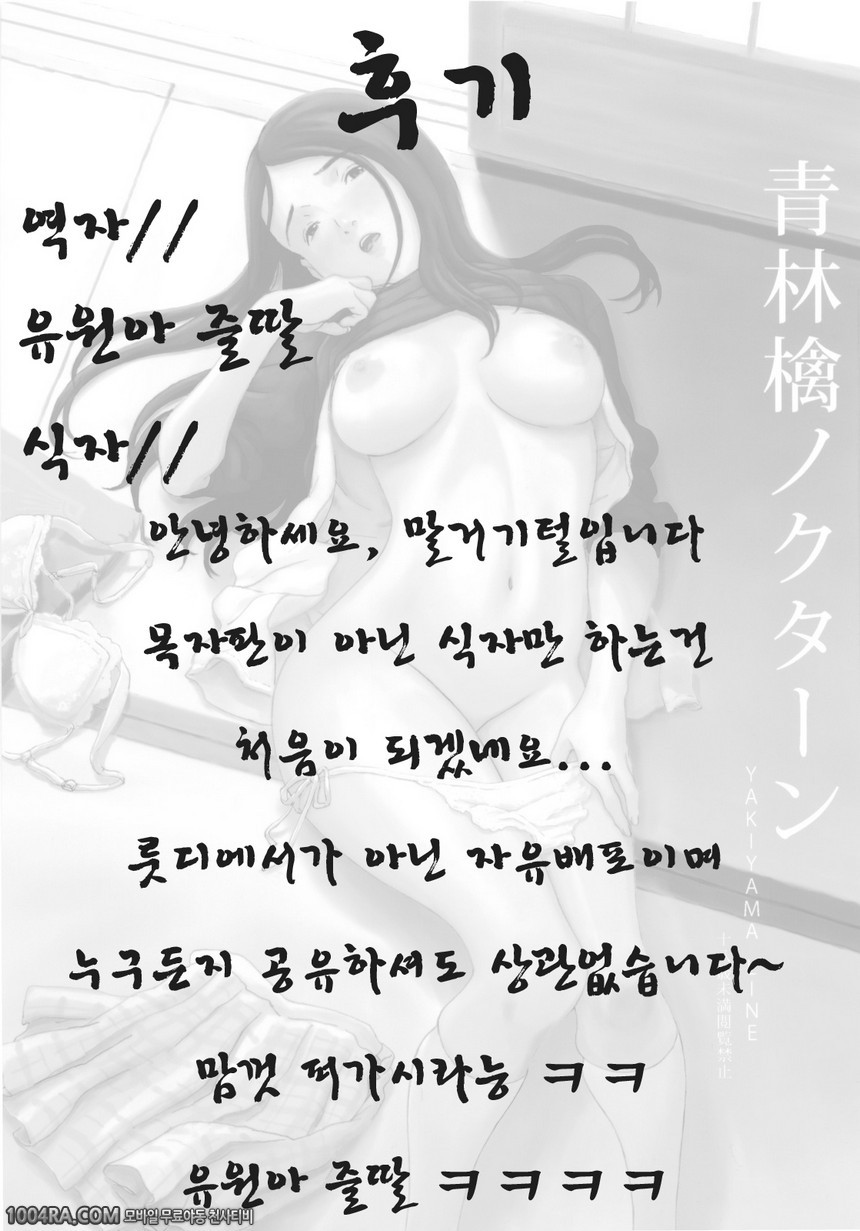 후기
역자//
유원아 줄딸
식자//
안녕하세요, 말거기털입니다
목자판이 아닌 식자만 하는건
처음이 되겠네요...
룻디에서가 아닌 자유배포이며
누구든지 공유하셔도 상관없습니다~
맘껏 펴가시라능 ㅋ ㅋ
유원아 줄딸 ㅋ ㅋ ㅋ ㅋ
青林檎ノクターン
YAKIYAMA INE
未満閲覧禁止
1004RA.COM 모바일 무료야동 천사티비